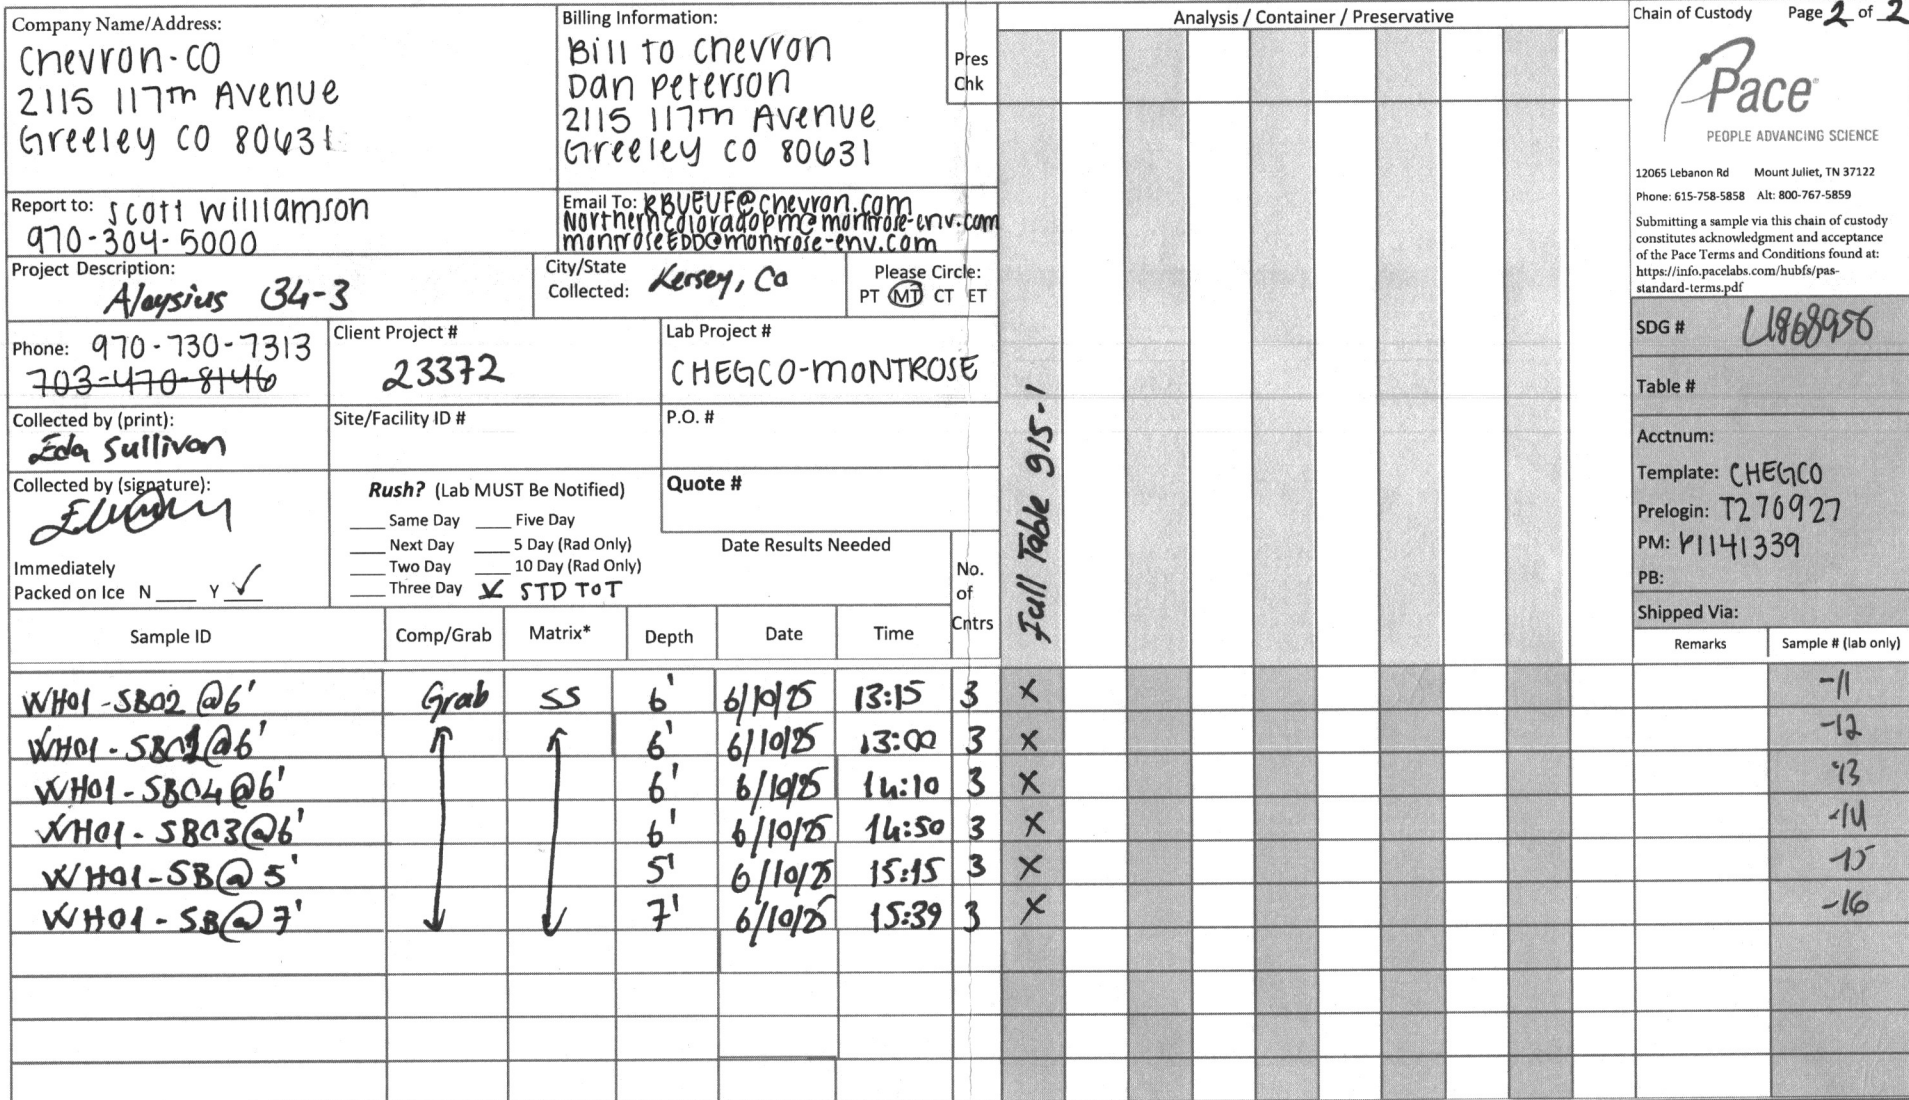 Company Name/Address:
Chevron-CO
2115 117th Avenue
Greeley CO 80631
Billing Information:
Bill to Chevron
Dan Peterson
2115 117th Avenue
Greeley CO 80631
Pres
Chk
Analysis / Container / Preservative
Chain of Custody Page 2 of 2
Pace
PEOPLE ADVANCING SCIENCE
12065 Lebanon Rd Mount Juliet, TN 37122
Phone: 615-758-5858 Alt: 800-767-5859
Submitting a sample via this chain of custody
constitutes acknowledgment and acceptance
of the Pace Terms and Conditions found at:
https://info.pacelabs.com/hubfs/pas-
standard-terms.pdf
Report to: Scott Williamson
970-304-5000
Email To: RBUEUF@chevron.com
Northerncoloradopm@montrose-env.com
montroseEDD@montrose-env.com
Project Description:
Aloysius 34-3
City/State
Collected: Kersey, Co
Please Circle:
PT MT CT ET
Phone: 970-730-7313
703-470-8146
Client Project #
23372
Lab Project #
CHEGCO-MONTROSE
SDG # L1868956
Table #
Collected by (print):
Eda Sullivan
Site/Facility ID #
P.O. #
Acctnum:
Template: CHEGCO
Prelogin: T270927
PM:
PB:
Shipped Via:
Collected by (signature):
Rush? (Lab MUST Be Notified)
Same Day Five Day
Next Day 5 Day (Rad Only)
Two Day 10 Day (Rad Only)
Three Day STD TOT
Quote #
Date Results Needed
Immediately
Packed on Ice N Y ✓
No.
of
Cntrs
Full Table 915-1
Sample ID Comp/Grab Matrix* Depth Date Time Remarks Sample # (lab only)
WH01-SB02@6' Grab SS 6' 6/10/25 13:15 3 X -11
WH01-SB01@6' 6' 6/10/25 13:00 3 X -12
WH01-SB04@6' 6' 6/10/25 14:10 3 X -13
WH01-SB03@6' 6' 6/10/25 14:50 3 X -14
WH01-SB@5' 5' 6/10/25 15:15 3 X -15
WH01-SB@7' 7' 6/10/25 15:39 3 X -16